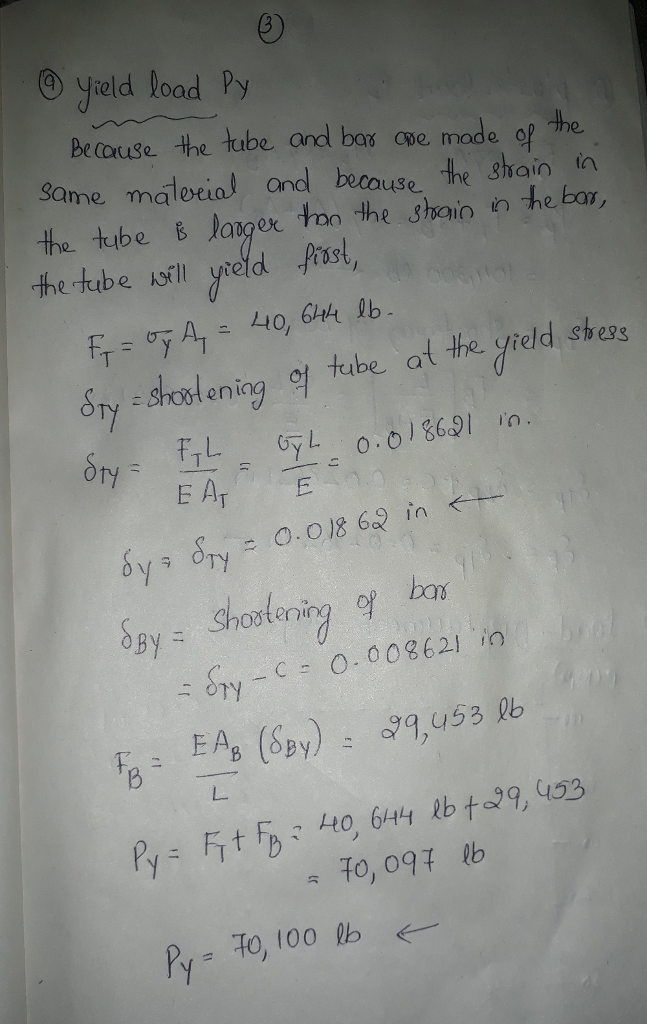 ③
ⓐ yield load Py
Because the tube and bar are made of the
same material and because the strain in
the tube is larger than the strain in the bar,
the tube will yield first,
F_T = σ_y A_T = 40,644 lb.
δ_Ty = shortening of tube at the yield stress
δ_Ty = F_T L / E A_T = σ_y L / E = 0.018621 in.
δ_y = δ_Ty = 0.01862 in ←
δ_By = Shortening of bar
= δ_Ty - c = 0.008621 in
F_B = E A_B / L (δ_By) = 29,453 lb
P_y = F_T + F_B = 40,644 lb + 29,453
= 70,097 lb
P_y = 70,100 lb ←